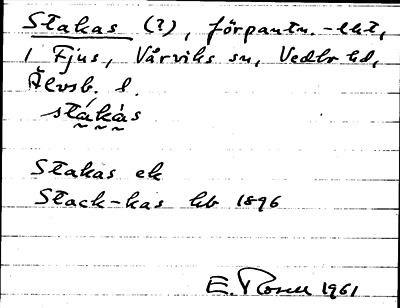 Stakas (?), förpantn.-lht,
i Fjus, Vårviks sn, Vedbo hd,
Älvsb. l.
stákàs
Stakas ek
Stack-kas hb 1896
E. Rosell 1961